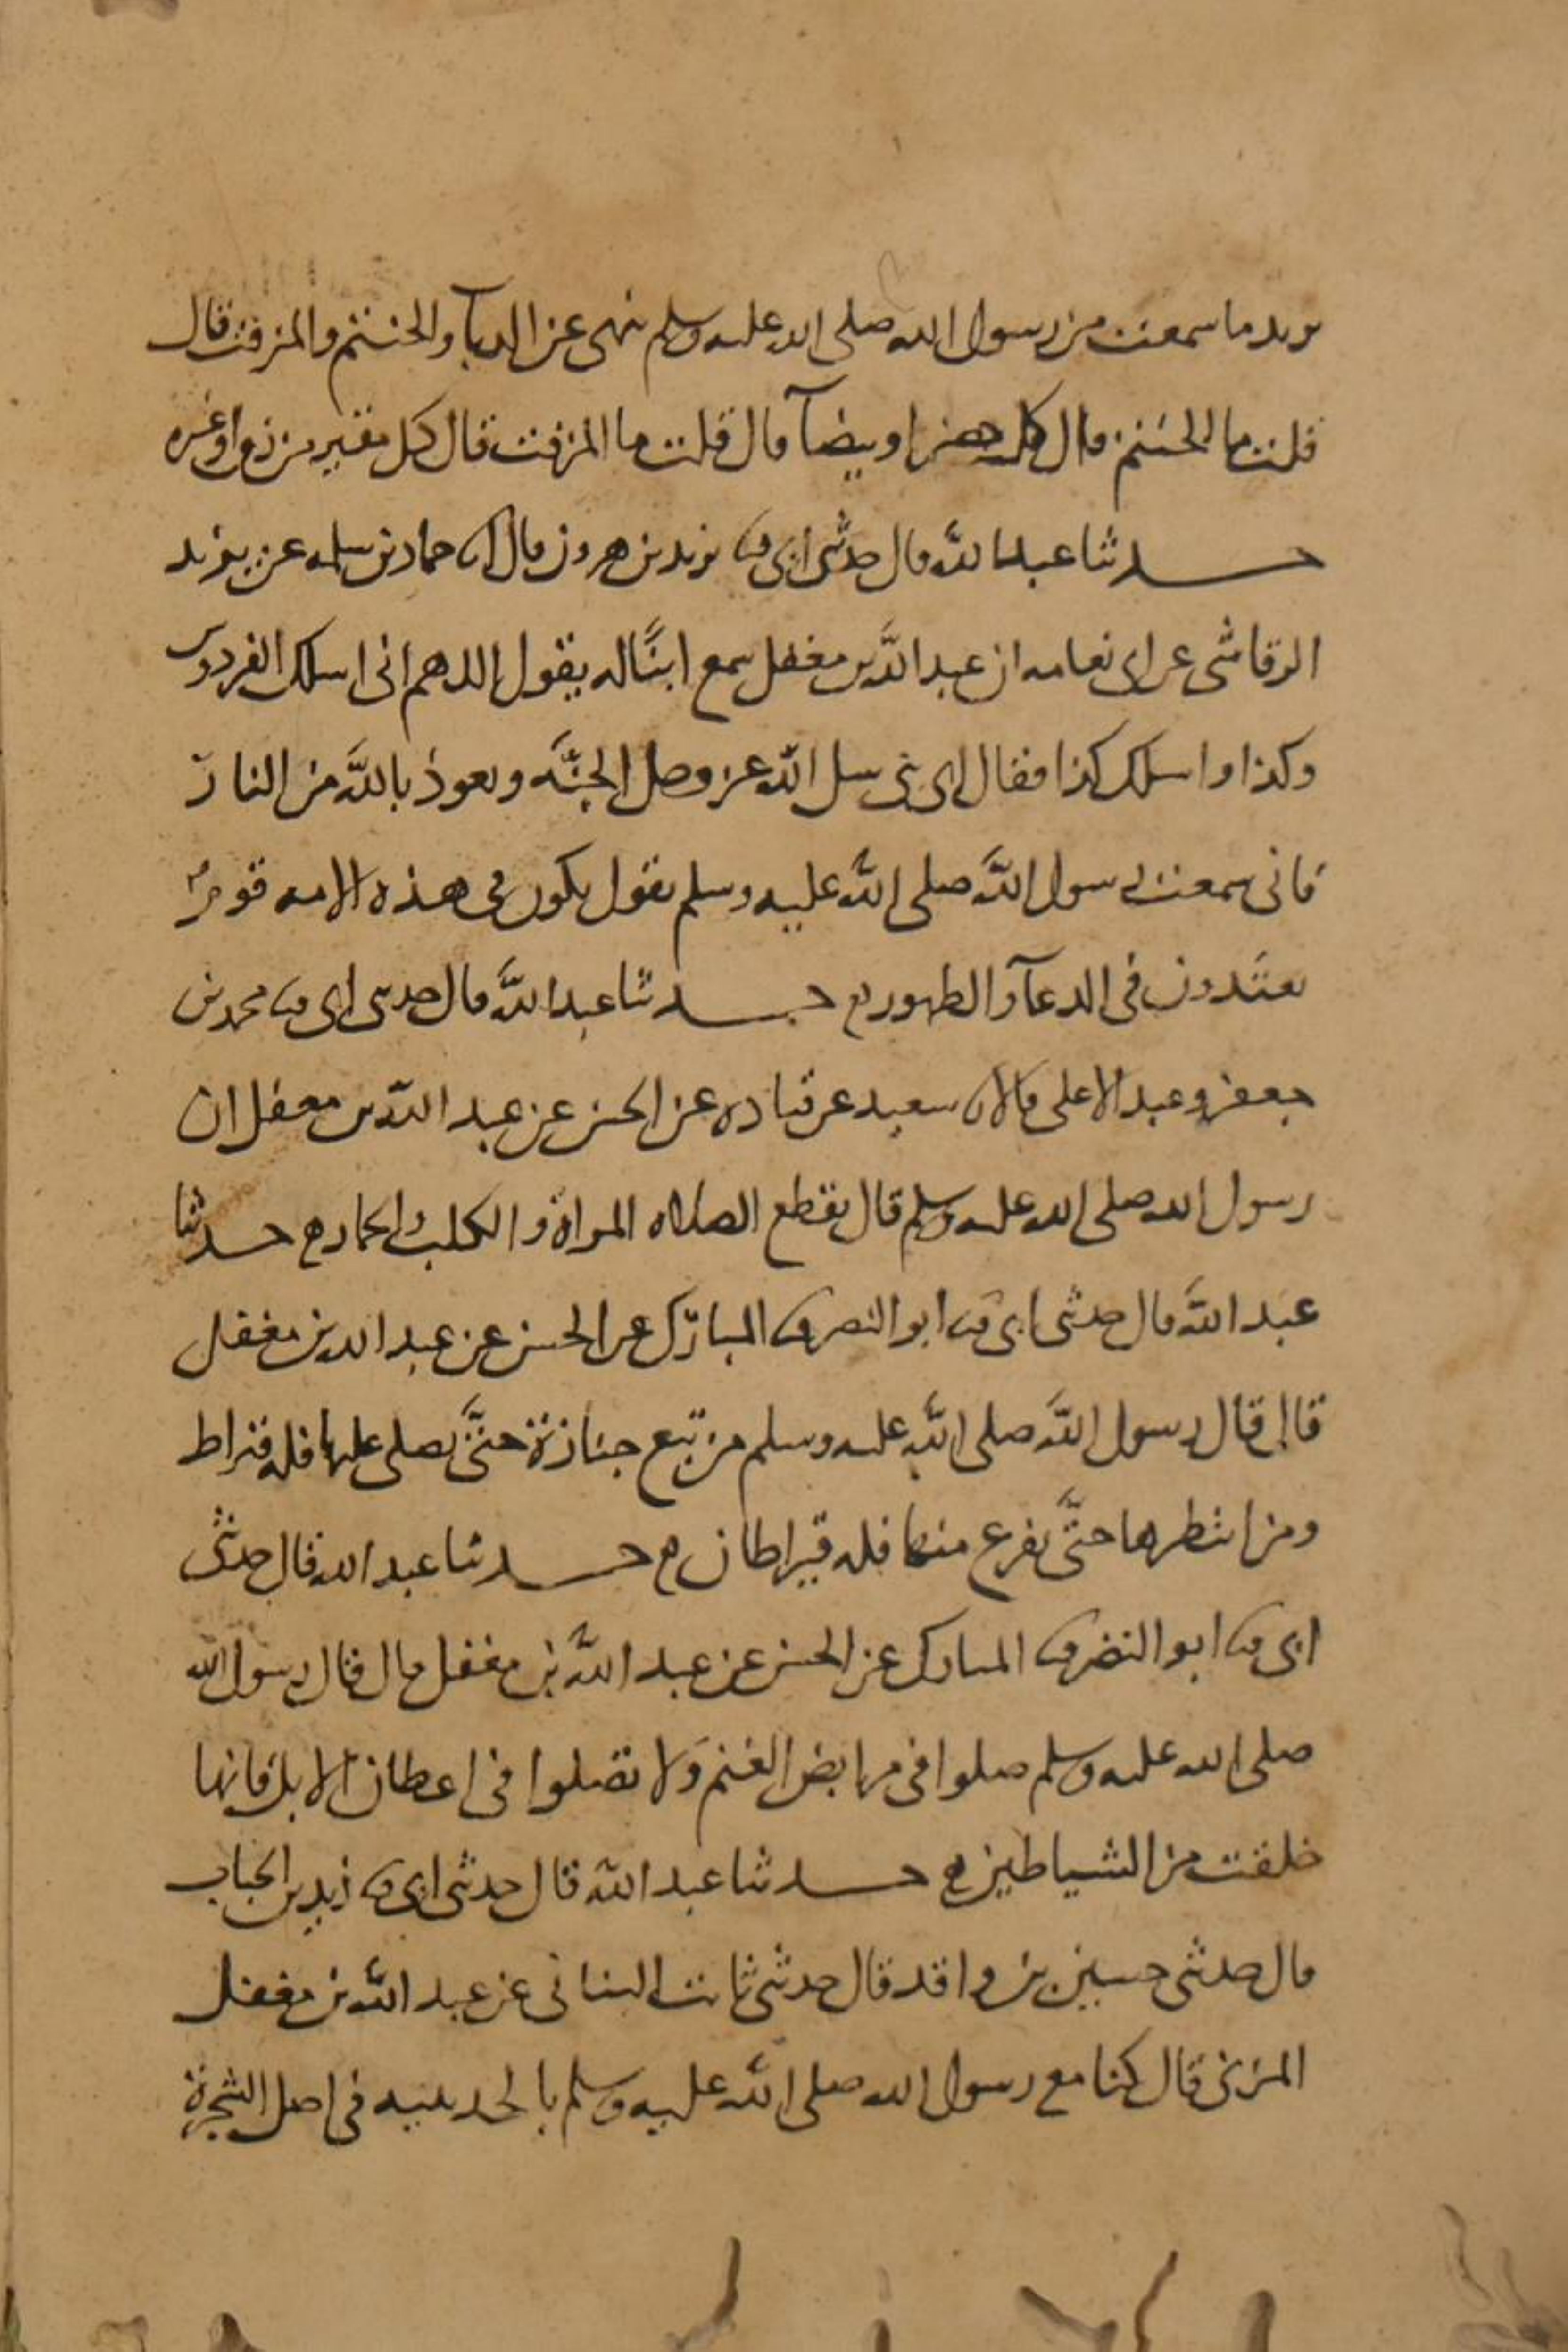 يريد ما سمعت من رسول الله صلى الله عليه وسلم نهى عن الدبآ والحنتم والمزفت قال
قلت ما الحنتم قال كل خضرا وبيضآ قال قلت ما المزفت قال كل مقير من زق او غيره
حدثنا عبد الله قال حدثنى ابى ثنا يزيد بن هرون قال انا حماد بن سلمه عن يزيد
الرقاشى عن ابى نعامه ان عبد الله بن مغفل سمع ابنًا له يقول اللهم انى اسلك الفردوس
وكذا واسلك كذا فقال اى بنى سل الله عز وجل الجنَّه وتعوذ بالله من النار
فانى سمعت رسول الله صلى الله عليه وسلم يقول يكون فى هذه الامه قومٌ
يعتدون فى الدعآ والطهور حدثنا عبد الله قال حدثنى ابى ثنا محمد بن
جعفر وعبد الاعلى قالا ثنا سعيد عن قتاده عن الحسن عن عبد الله بن مغفل ان
رسول الله صلى الله عليه وسلم قال يقطع الصلاه المراة والكلب والحمار حدثنا
عبد الله قال حدثنى ابى ثنا ابو النضر ثنا المبارك عن الحسن عن عبد الله بن مغفل
قال قال رسول الله صلى الله عليه وسلم من تبع جنازة حتَّى يصلى عليها فله قيراط
ومن انتظرها حتَّى يفرغ منها فله قيراطان حدثنا عبد الله قال حدثنى
ابى ثنا ابو النضر ثنا المبارك عن الحسن عن عبد الله بن مغفل قال قال رسول الله
صلى الله عليه وسلم صلوا فى مرابض الغنم وَلا تصلوا فى اعطان الابل فانها
خلقت من الشياطين حدثنا عبد الله قال حدثنى ابى ثنا زيد بن الحباب
قال حدثنى حسين بن واقد قال حدثنى ثابت البنانى عن عبد الله بن مغفل
المزنى قال كنا مع رسول الله صلى الله عليه وسلم بالحديبيه فى اصل الشجرة